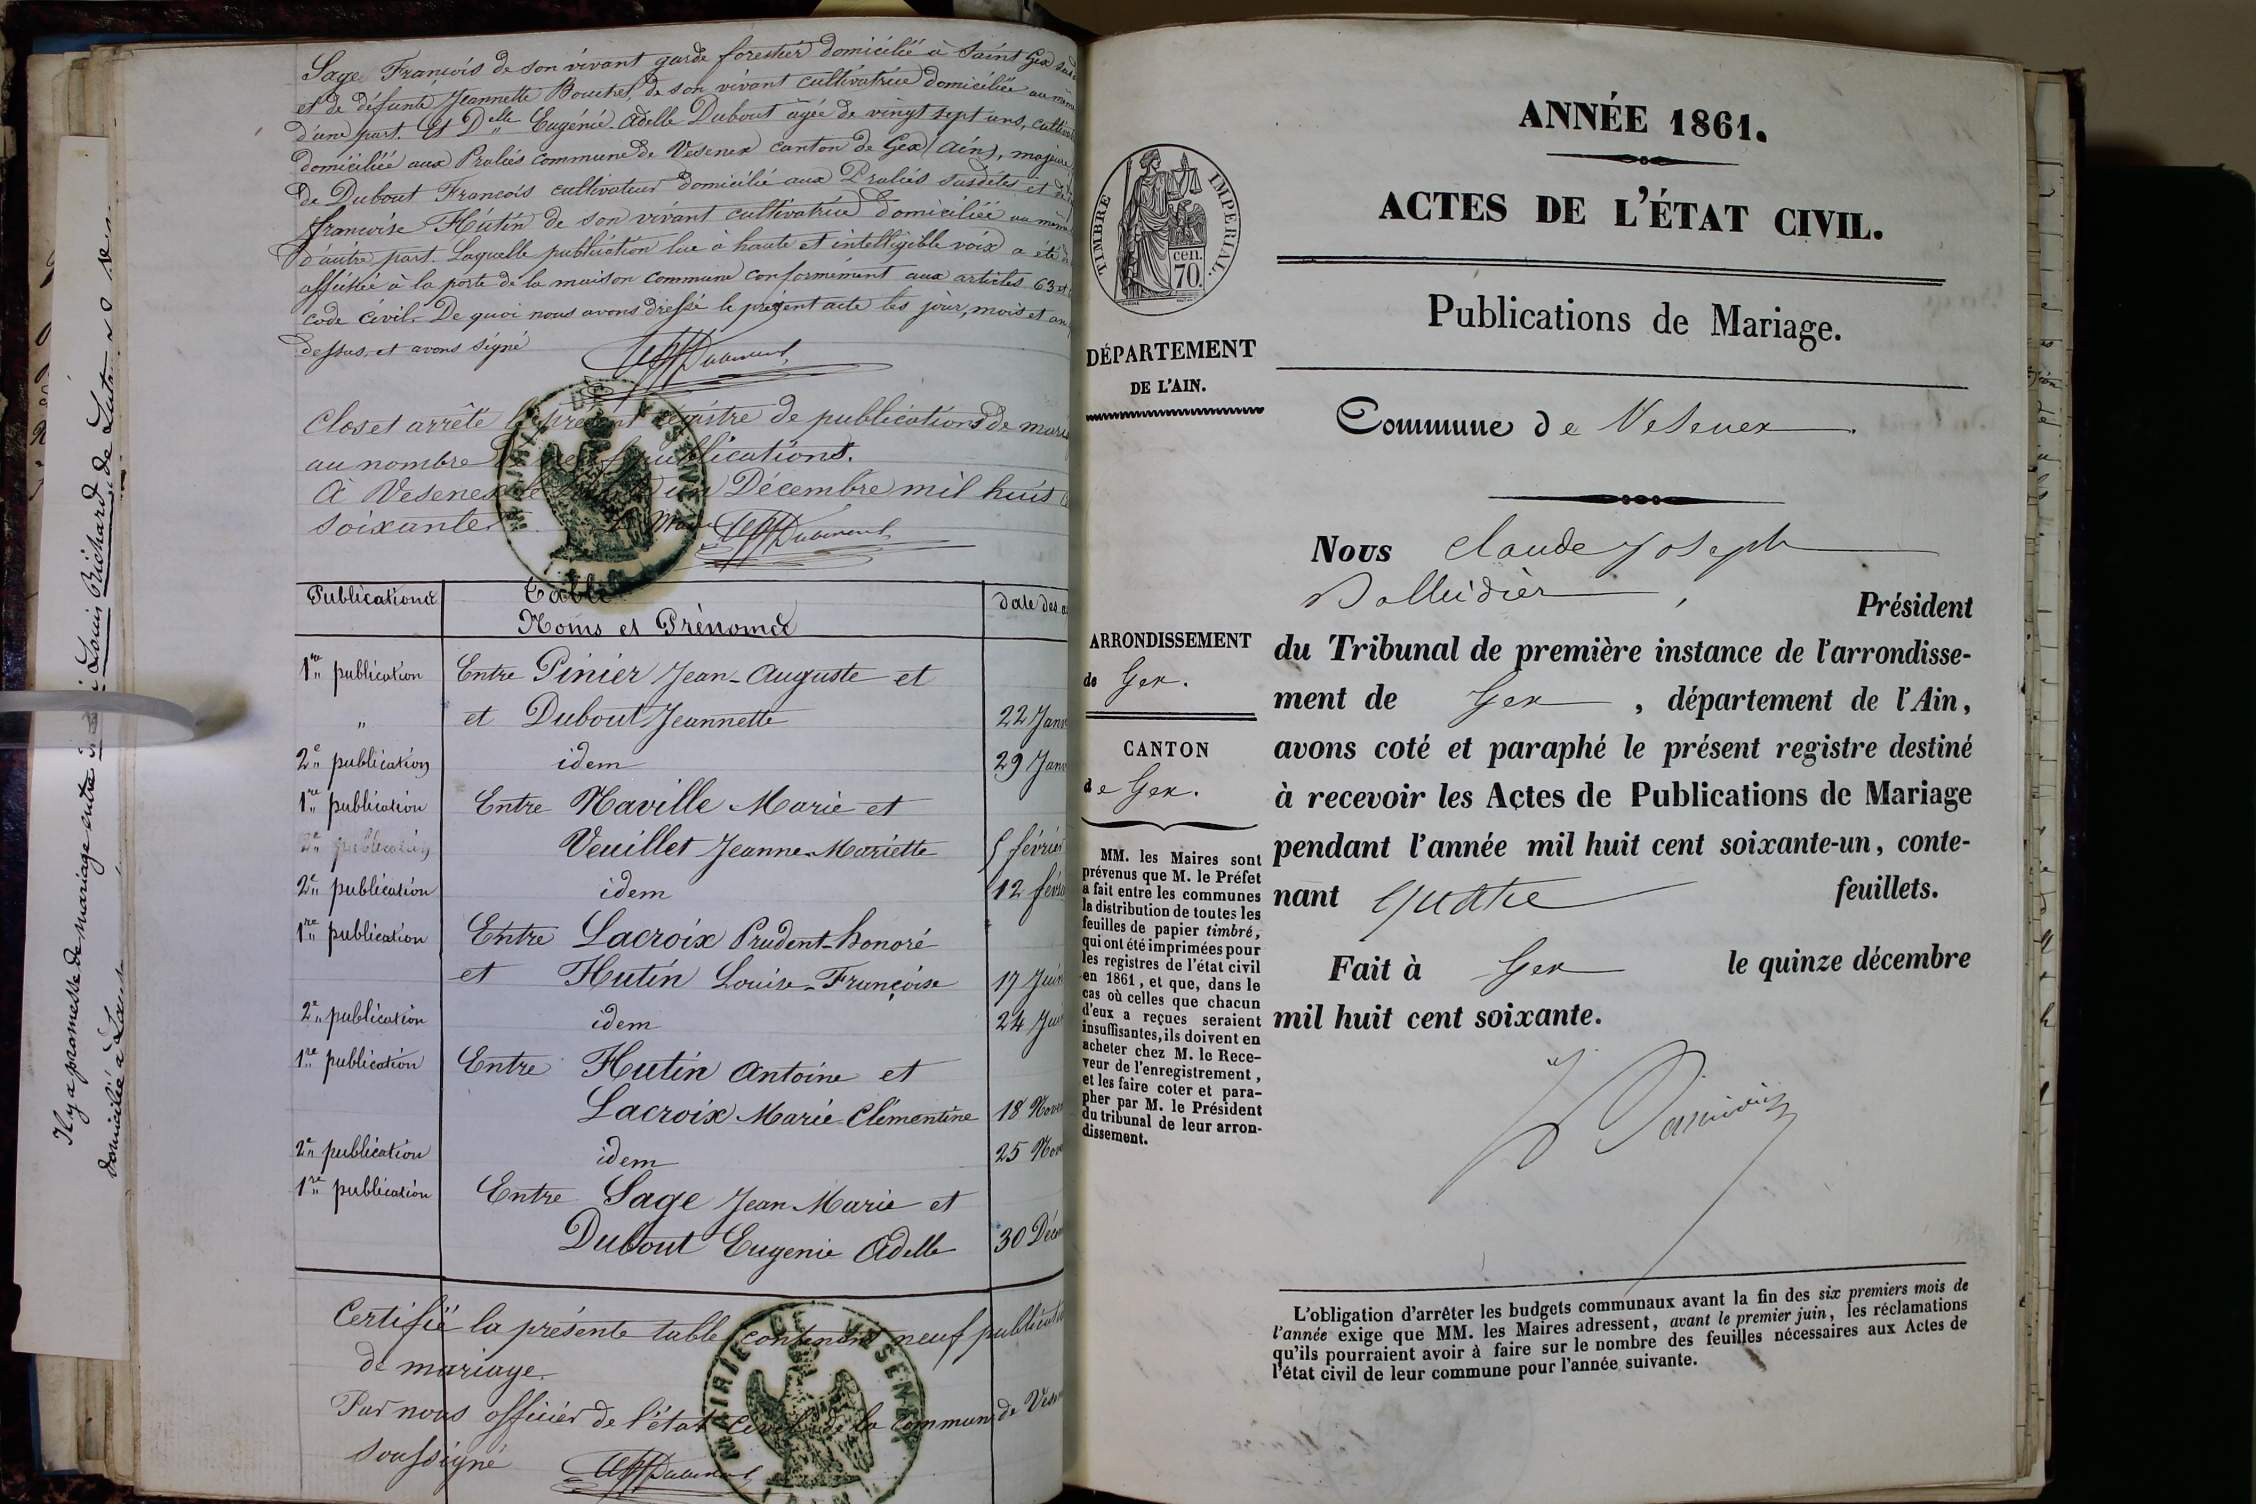 Sage François de son vivant garde forestier domicilié à Saint Gex
et de défunte Jeannette Bouchet, de son vivant cultivatrice domiciliée au même
d'une part. Et Delle Eugénie Adelle Dubout âgée de vingt sept ans,
domiciliée aux Pralies commune de Vesenex canton de Gex (Ain), majeure
de Dubout François cultivateur domicilié aux Pralies susdites et de
françoise Hutin de son vivant cultivatrice domiciliée au même
d'autre part. Laquelle publication lue à haute et intelligible voix a été
affichée à la porte de la maison commune conformément aux articles 63 et
code civil. De quoi nous avons dressé le présent acte les jour, mois et an
dessus et avons signé
Clos et arrêté le présent registre de publications de
au nombre de neuf publications.
À Vesenex le un Décembre mil huit
soixante. Le Maire
MAIRIE DE VESENEX
AIN
Publications
Table
Noms et Prénoms
date des
1re publication Entre Pinier Jean-Auguste et
" et Dubout Jeannette 22 Janv
2e publication idem 29 Janv
1re publication Entre Naville Marie et
2e publication Veuillet Jeanne-Mariette 5 février
2e publication idem 12 févr
1re publication Entre Lacroix Prudent-honoré
et Hutin Louise-Françoise 17 Juin
2e publication idem 24 Juin
1re publication Entre Hutin Antoine et
Lacroix Marie Clémentine 18 Nov
2e publication idem 25 Nov
1re publication Entre Sage Jean Marie et
Dubout Eugenie Adelle 30 Déc
Certifié la présente table contenant neuf publicat
de mariage.
Par nous officier de l'état civil de la commune de Vese
soussigné
MAIRIE DE VESENEX
AIN
Il y a promesse de mariage entre Louis Richard de
domicilié à
ANNÉE 1861.
ACTES DE L'ÉTAT CIVIL.
Publications de Mariage.
TIMBRE IMPERIAL.
cen.
70.
DÉPARTEMENT
DE L'AIN.
Commune de Vesenex
Nous Claude Joseph
Président
du Tribunal de première instance de l'arrondisse-
ment de Gex, département de l'Ain,
avons coté et paraphé le présent registre destiné
à recevoir les Actes de Publications de Mariage
pendant l'année mil huit cent soixante-un, conte-
nant quatre feuillets.
Fait à Gex le quinze décembre
mil huit cent soixante.
ARRONDISSEMENT
de Gex.
CANTON
de Gex.
MM. les Maires sont
prévenus que M. le Préfet
a fait entre les communes
la distribution de toutes les
feuilles de papier timbré,
qui ont été imprimées pour
les registres de l'état civil
en 1861, et que, dans le
cas où celles que chacun
d'eux a reçues seraient
insuffisantes, ils doivent en
acheter chez M. le Rece-
veur de l'enregistrement,
et les faire coter et para-
pher par M. le Président
du tribunal de leur arron-
dissement.
L'obligation d'arrêter les budgets communaux avant la fin des six premiers mois de
l'année exige que MM. les Maires adressent, avant le premier juin, les réclamations
qu'ils pourraient avoir à faire sur le nombre des feuilles nécessaires aux Actes de
l'état civil de leur commune pour l'année suivante.